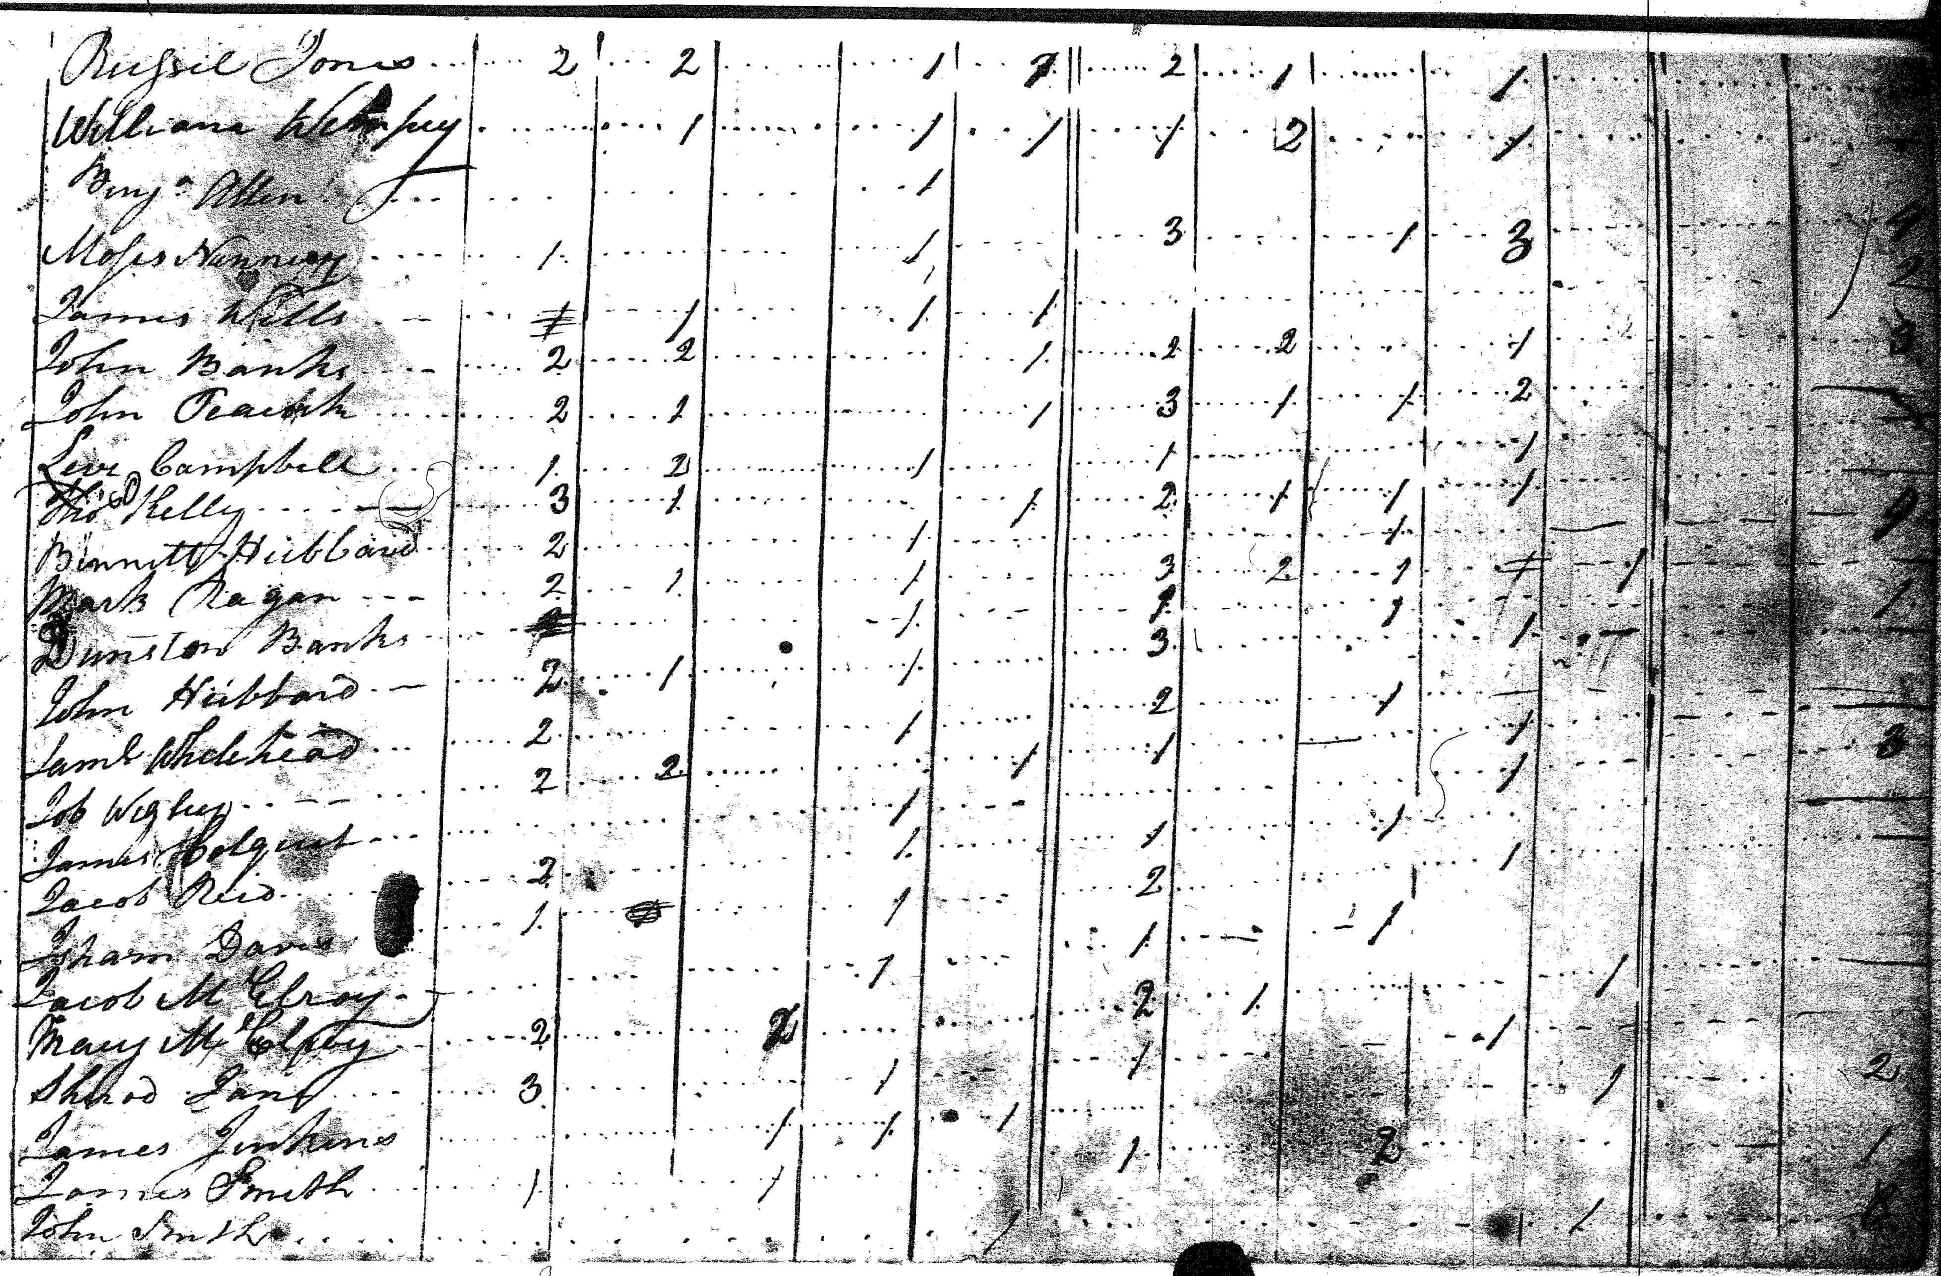 Russel Jones 2 2 1 2 1 1
William 1 1 1 1 2 1
Benj.a Allen 1
Moses Nunnery 1 1 3 1 3
James Wills 1 1 1
John Banks 2 2 1 2 2 1
John Peacock 2 1 1 3 1 1 2
Levi Campbell 1 2 1 1 1
Thos Kelly 3 1 1 2 1 1 1 9
Bennett Hubbard 2 1 1
Mark Ragan 2 1 1 3 2 1 1
Dunston Banks 1 1 1
John Hubbard 2 1 1 3 1
Saml Whitehead 2 1 2 1
Job Wigley 2 2 1 1 1 3
James Colquit 1 1
Jacob Reid 2 1 1 1
Isham Davis 1 1 2 1
Jacob McElroy 1 1 1
Mary McElroy 2 2 2 1 1
Shirod Jane 3 1 1 1 2
James Jenkins 1 1 1 1
James Smith 1 1 1 2 1
John Smith 1 1